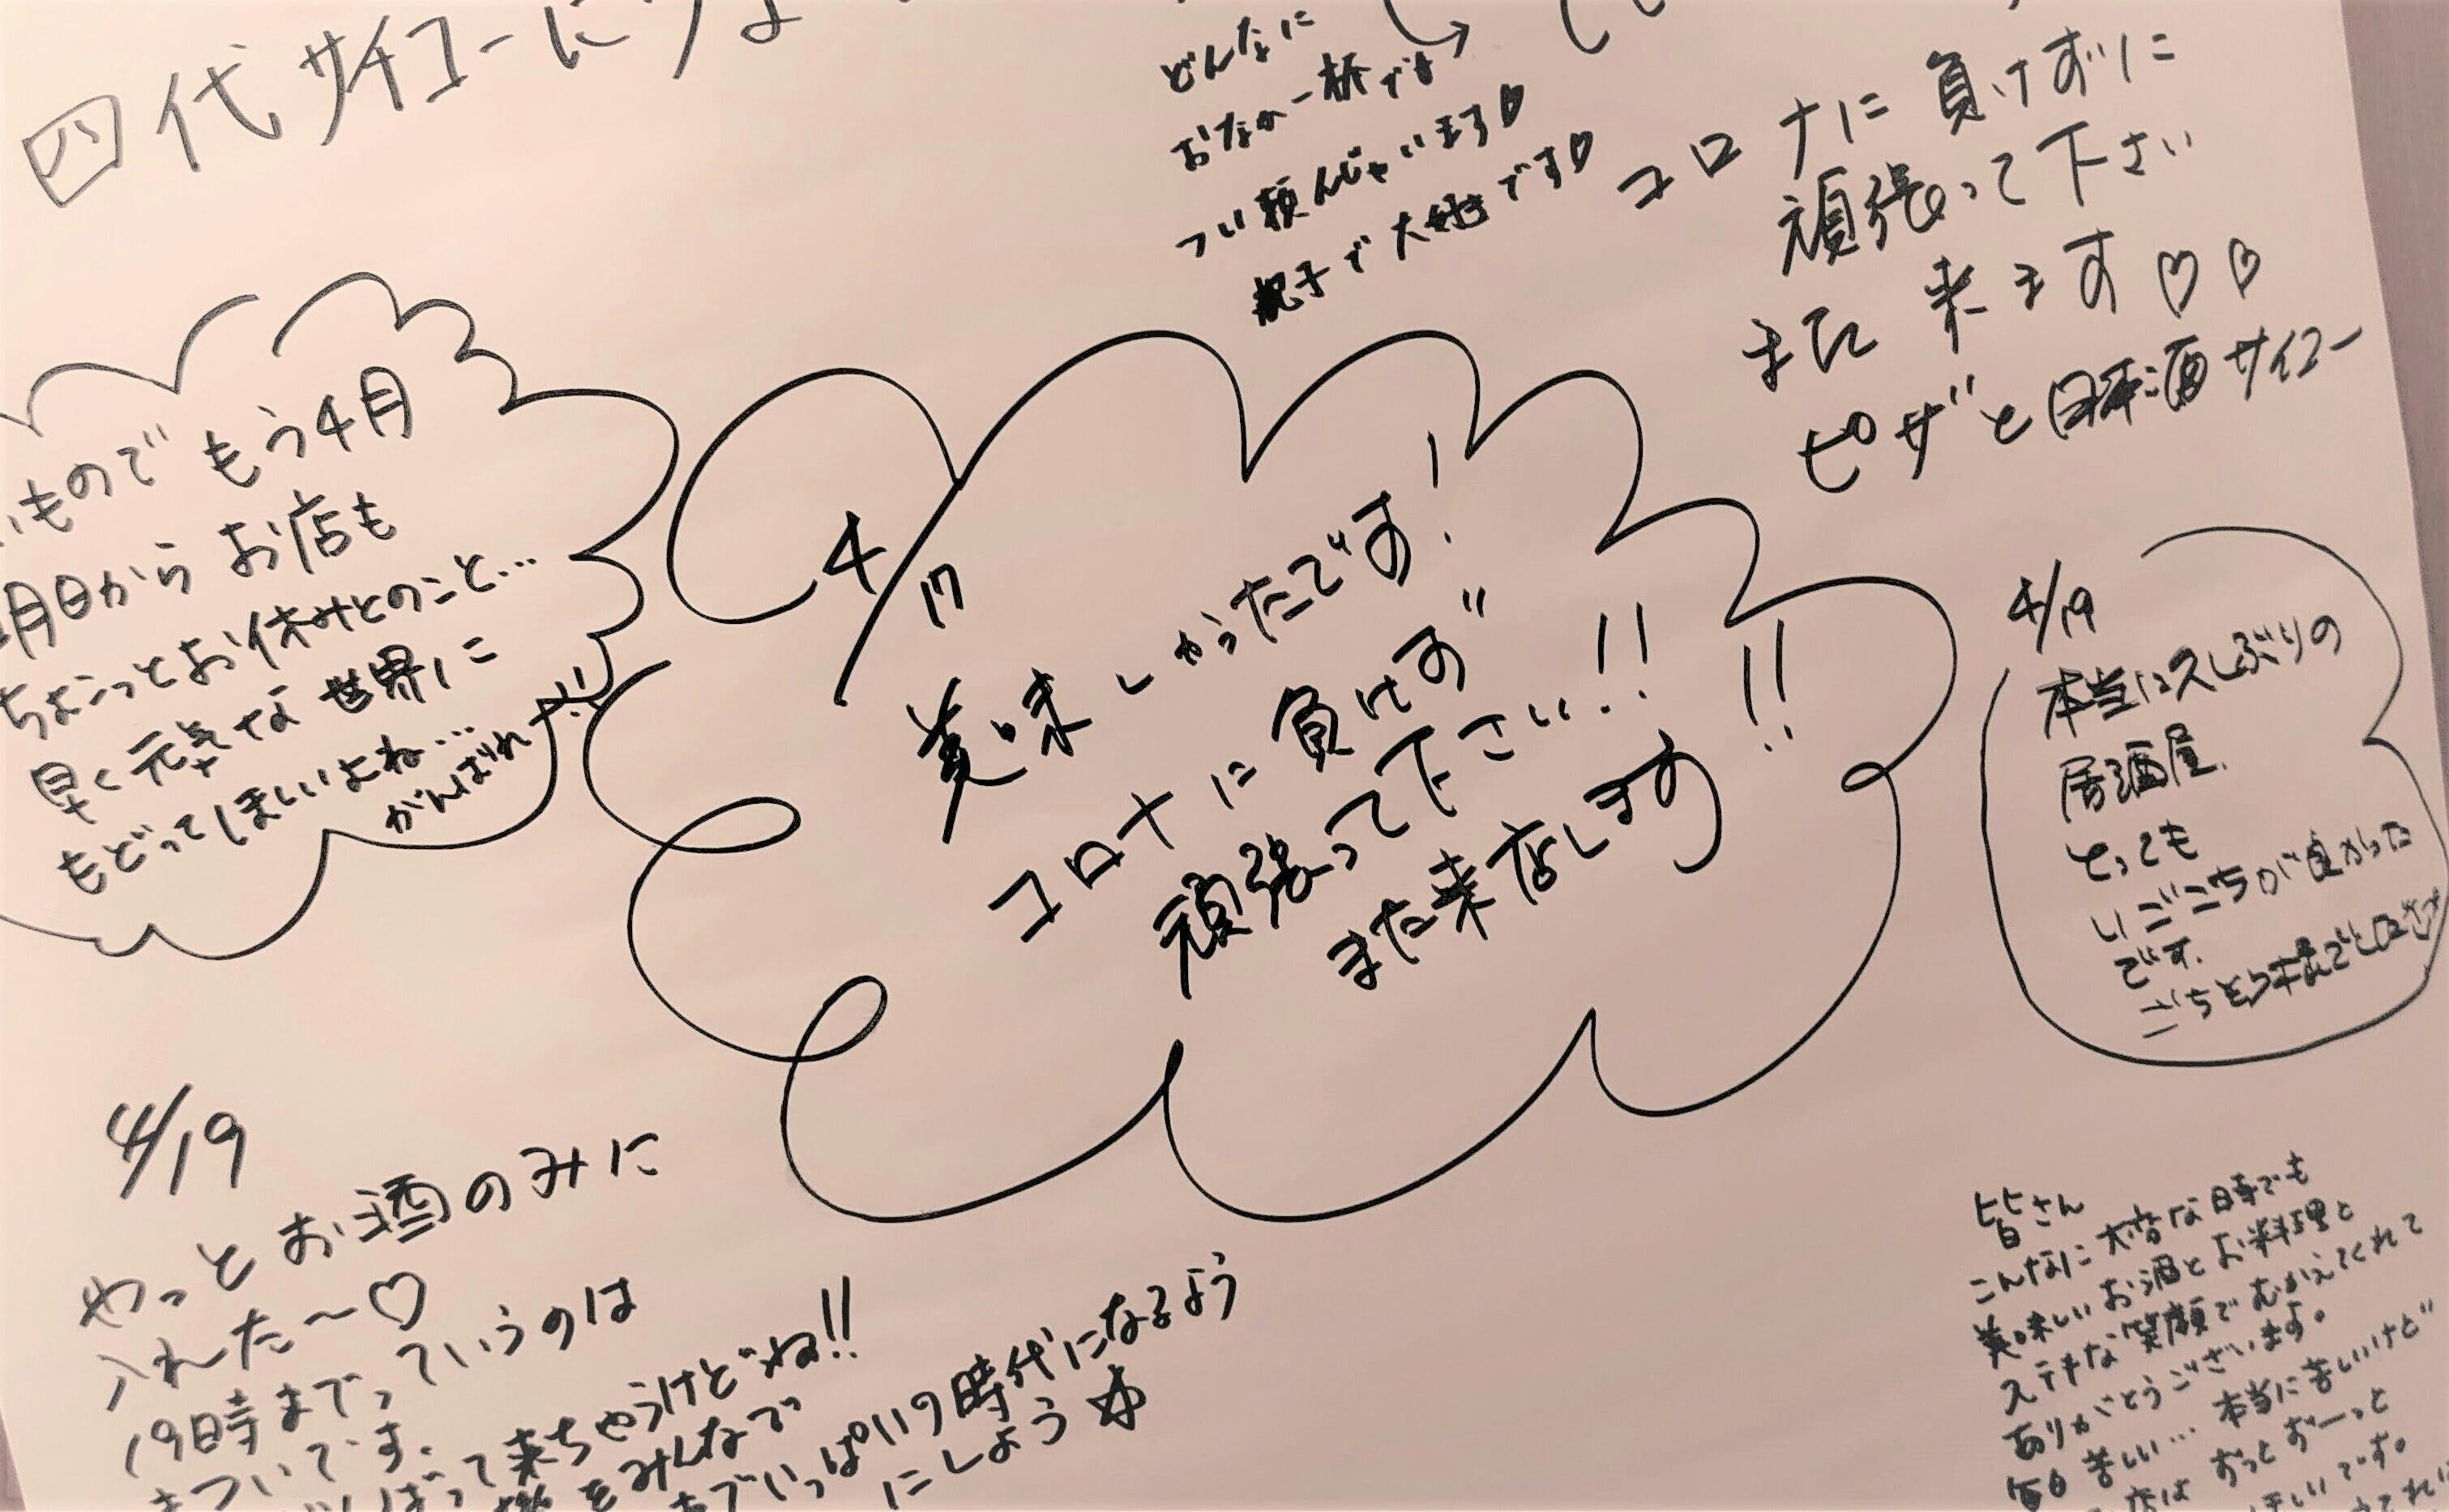 四代サイコーに
どんなに
おなか一杯でも
つい頼んじゃいます♡
親子で大好きです♡
コロナに負けずに
頑張って下さい
また来ます♡♡
ピザと日本酒サイコー
ものでもう4月
月日からお店も
ちょこっとお休みとのこと…
早く元気な世界に
もどってほしいよね…
がんばれー!!
4/17
美味しかったです!
コロナに負けず
頑張って下さい!!
また来店します!!
4/19
本当に久しぶりの
居酒屋。
とっても
いごこちが良かった
です。
ごちそう様でした
4/19
やっとお酒のみに
入れた〜♡
19時までっていうのは
きついです。
ばって来ちゃうけどね!!
をみんなで
でいっぱいの時代になるよう
にしよう☆
皆さん
こんなに大変な時でも
美味しいお酒とお料理と
ステキな笑顔でむかえてくれて
ありがとうございます。
毎日苦しい…本当に苦しいけど
店はずっとずーっと
ほしいです。